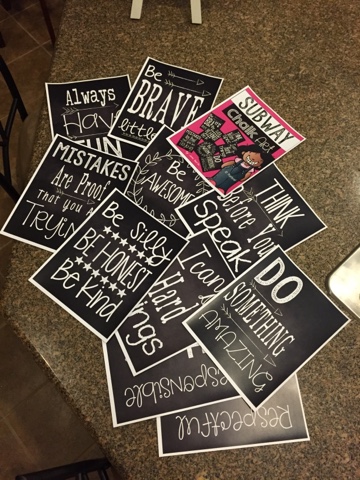 Always
Have
FUN
Be
BRAVE
little
SUBWAY
Chalk ART
MISTAKES
Are Proof
That you
Trying
Be
AWESOME
THINK
Before You
Speak
Be Silly
BE HONEST
Be Kind
I can
Hard
Things
DO
SOMETHING
AMAZING
Responsible
Respectful